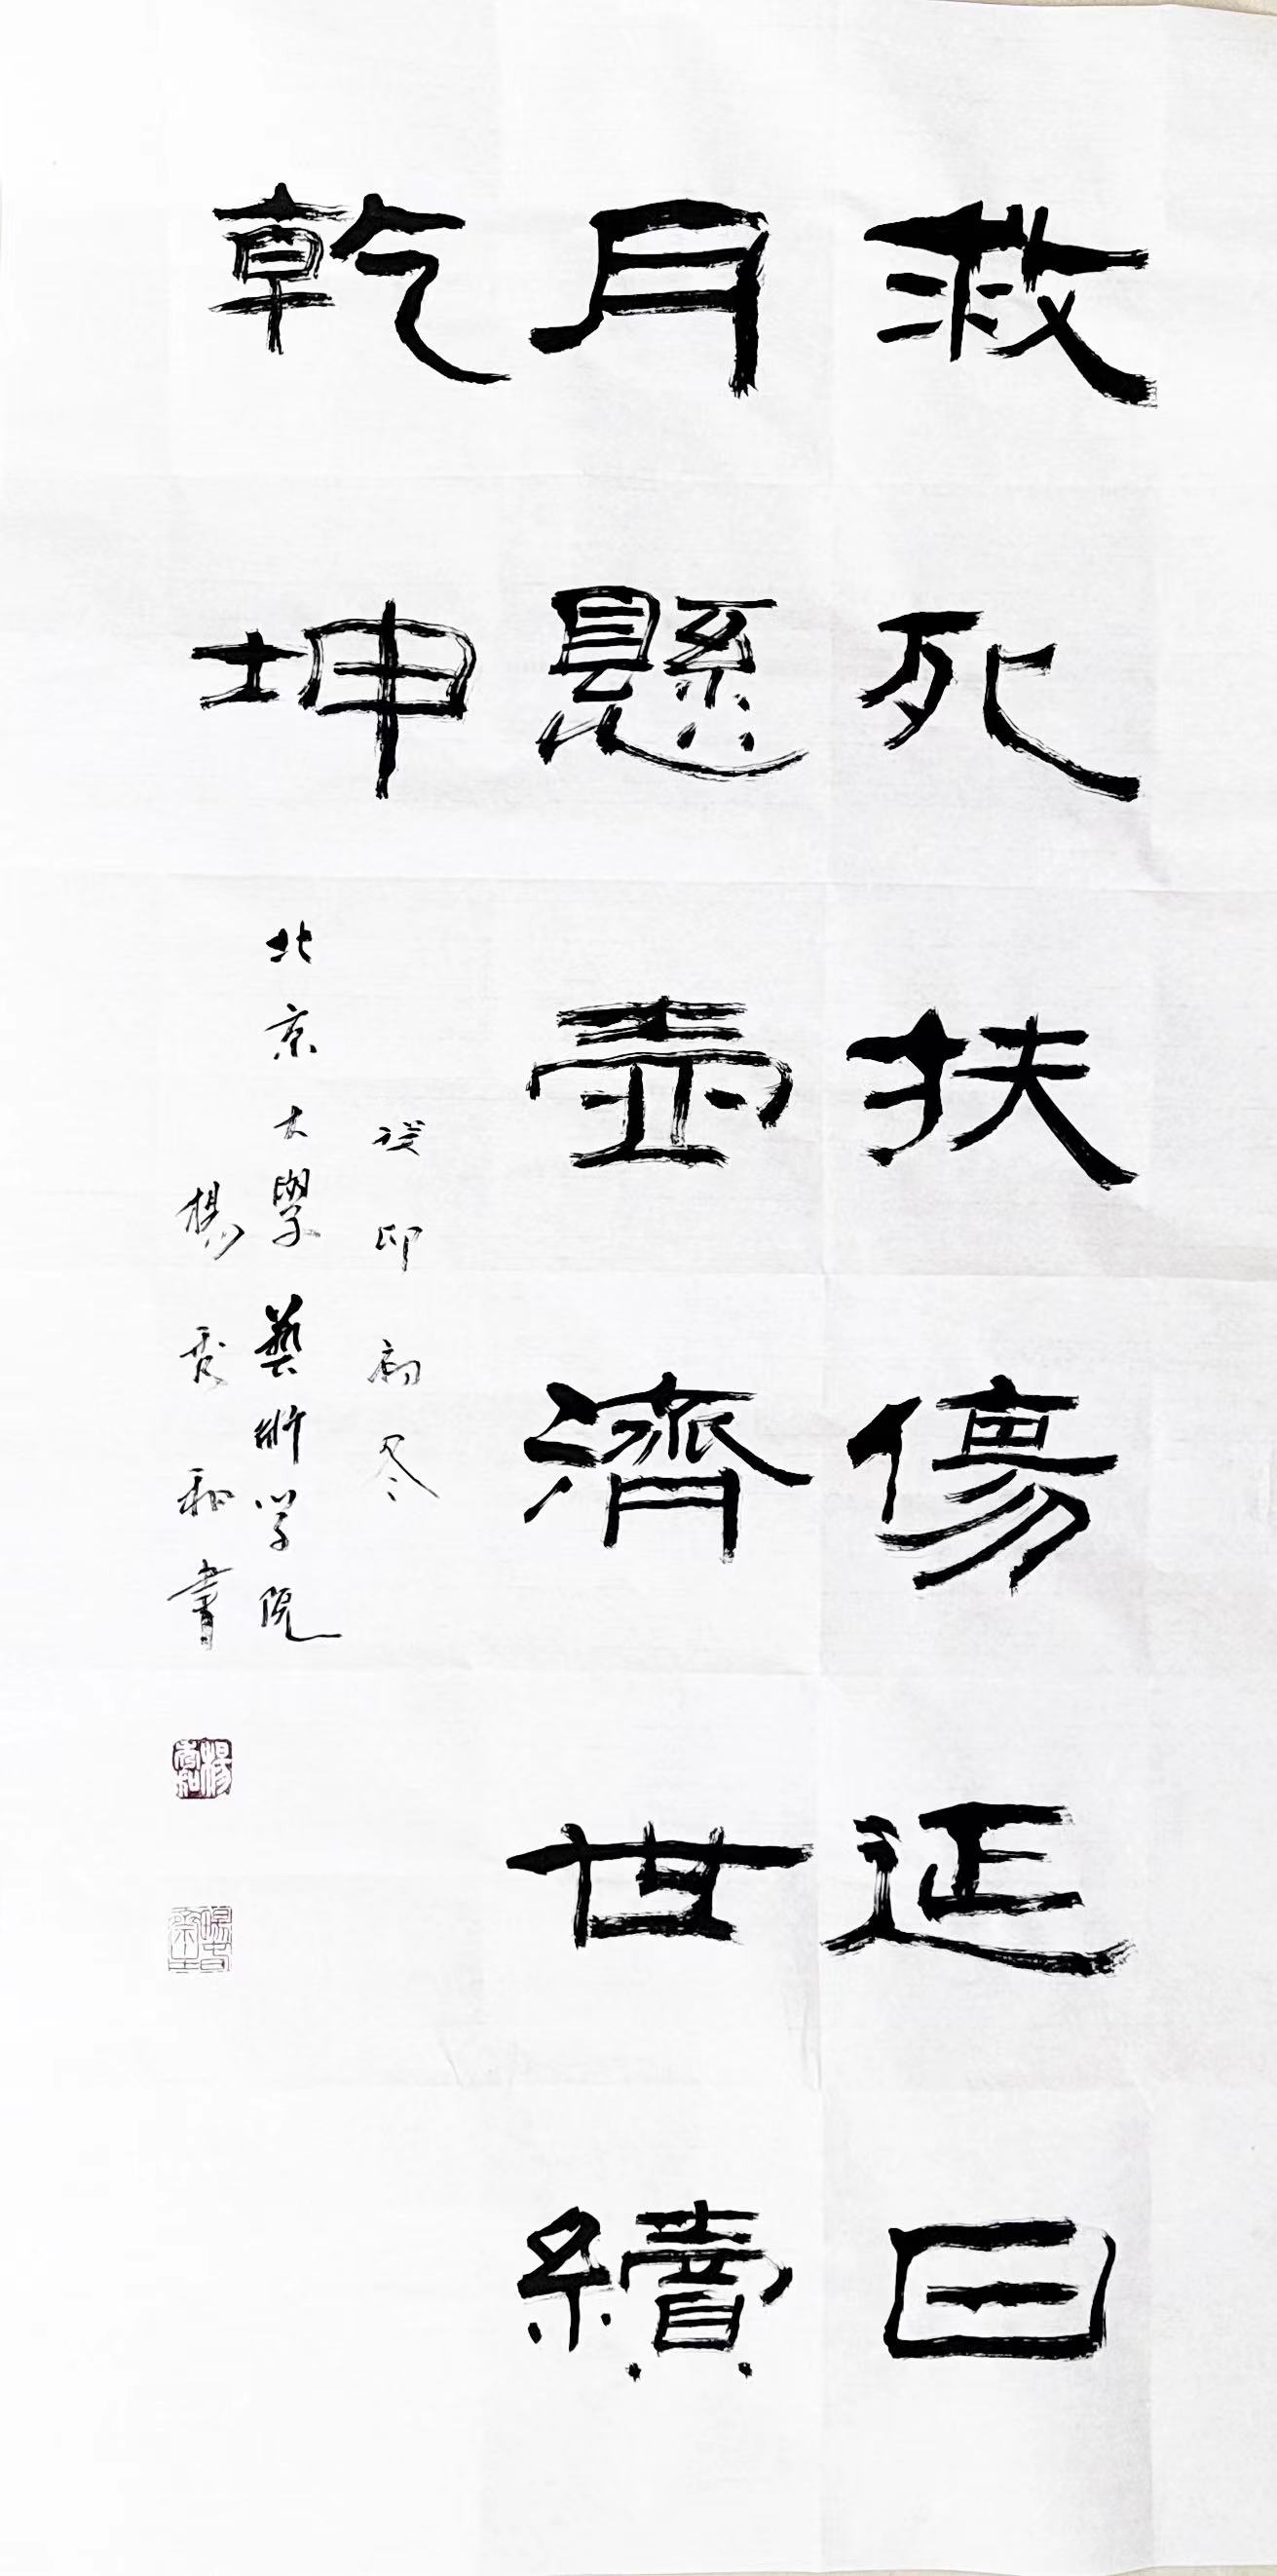 救死扶傷延日
月懸壺濟世續
乾坤
癸卯初冬
北京大學藝術學院
楊秀和書